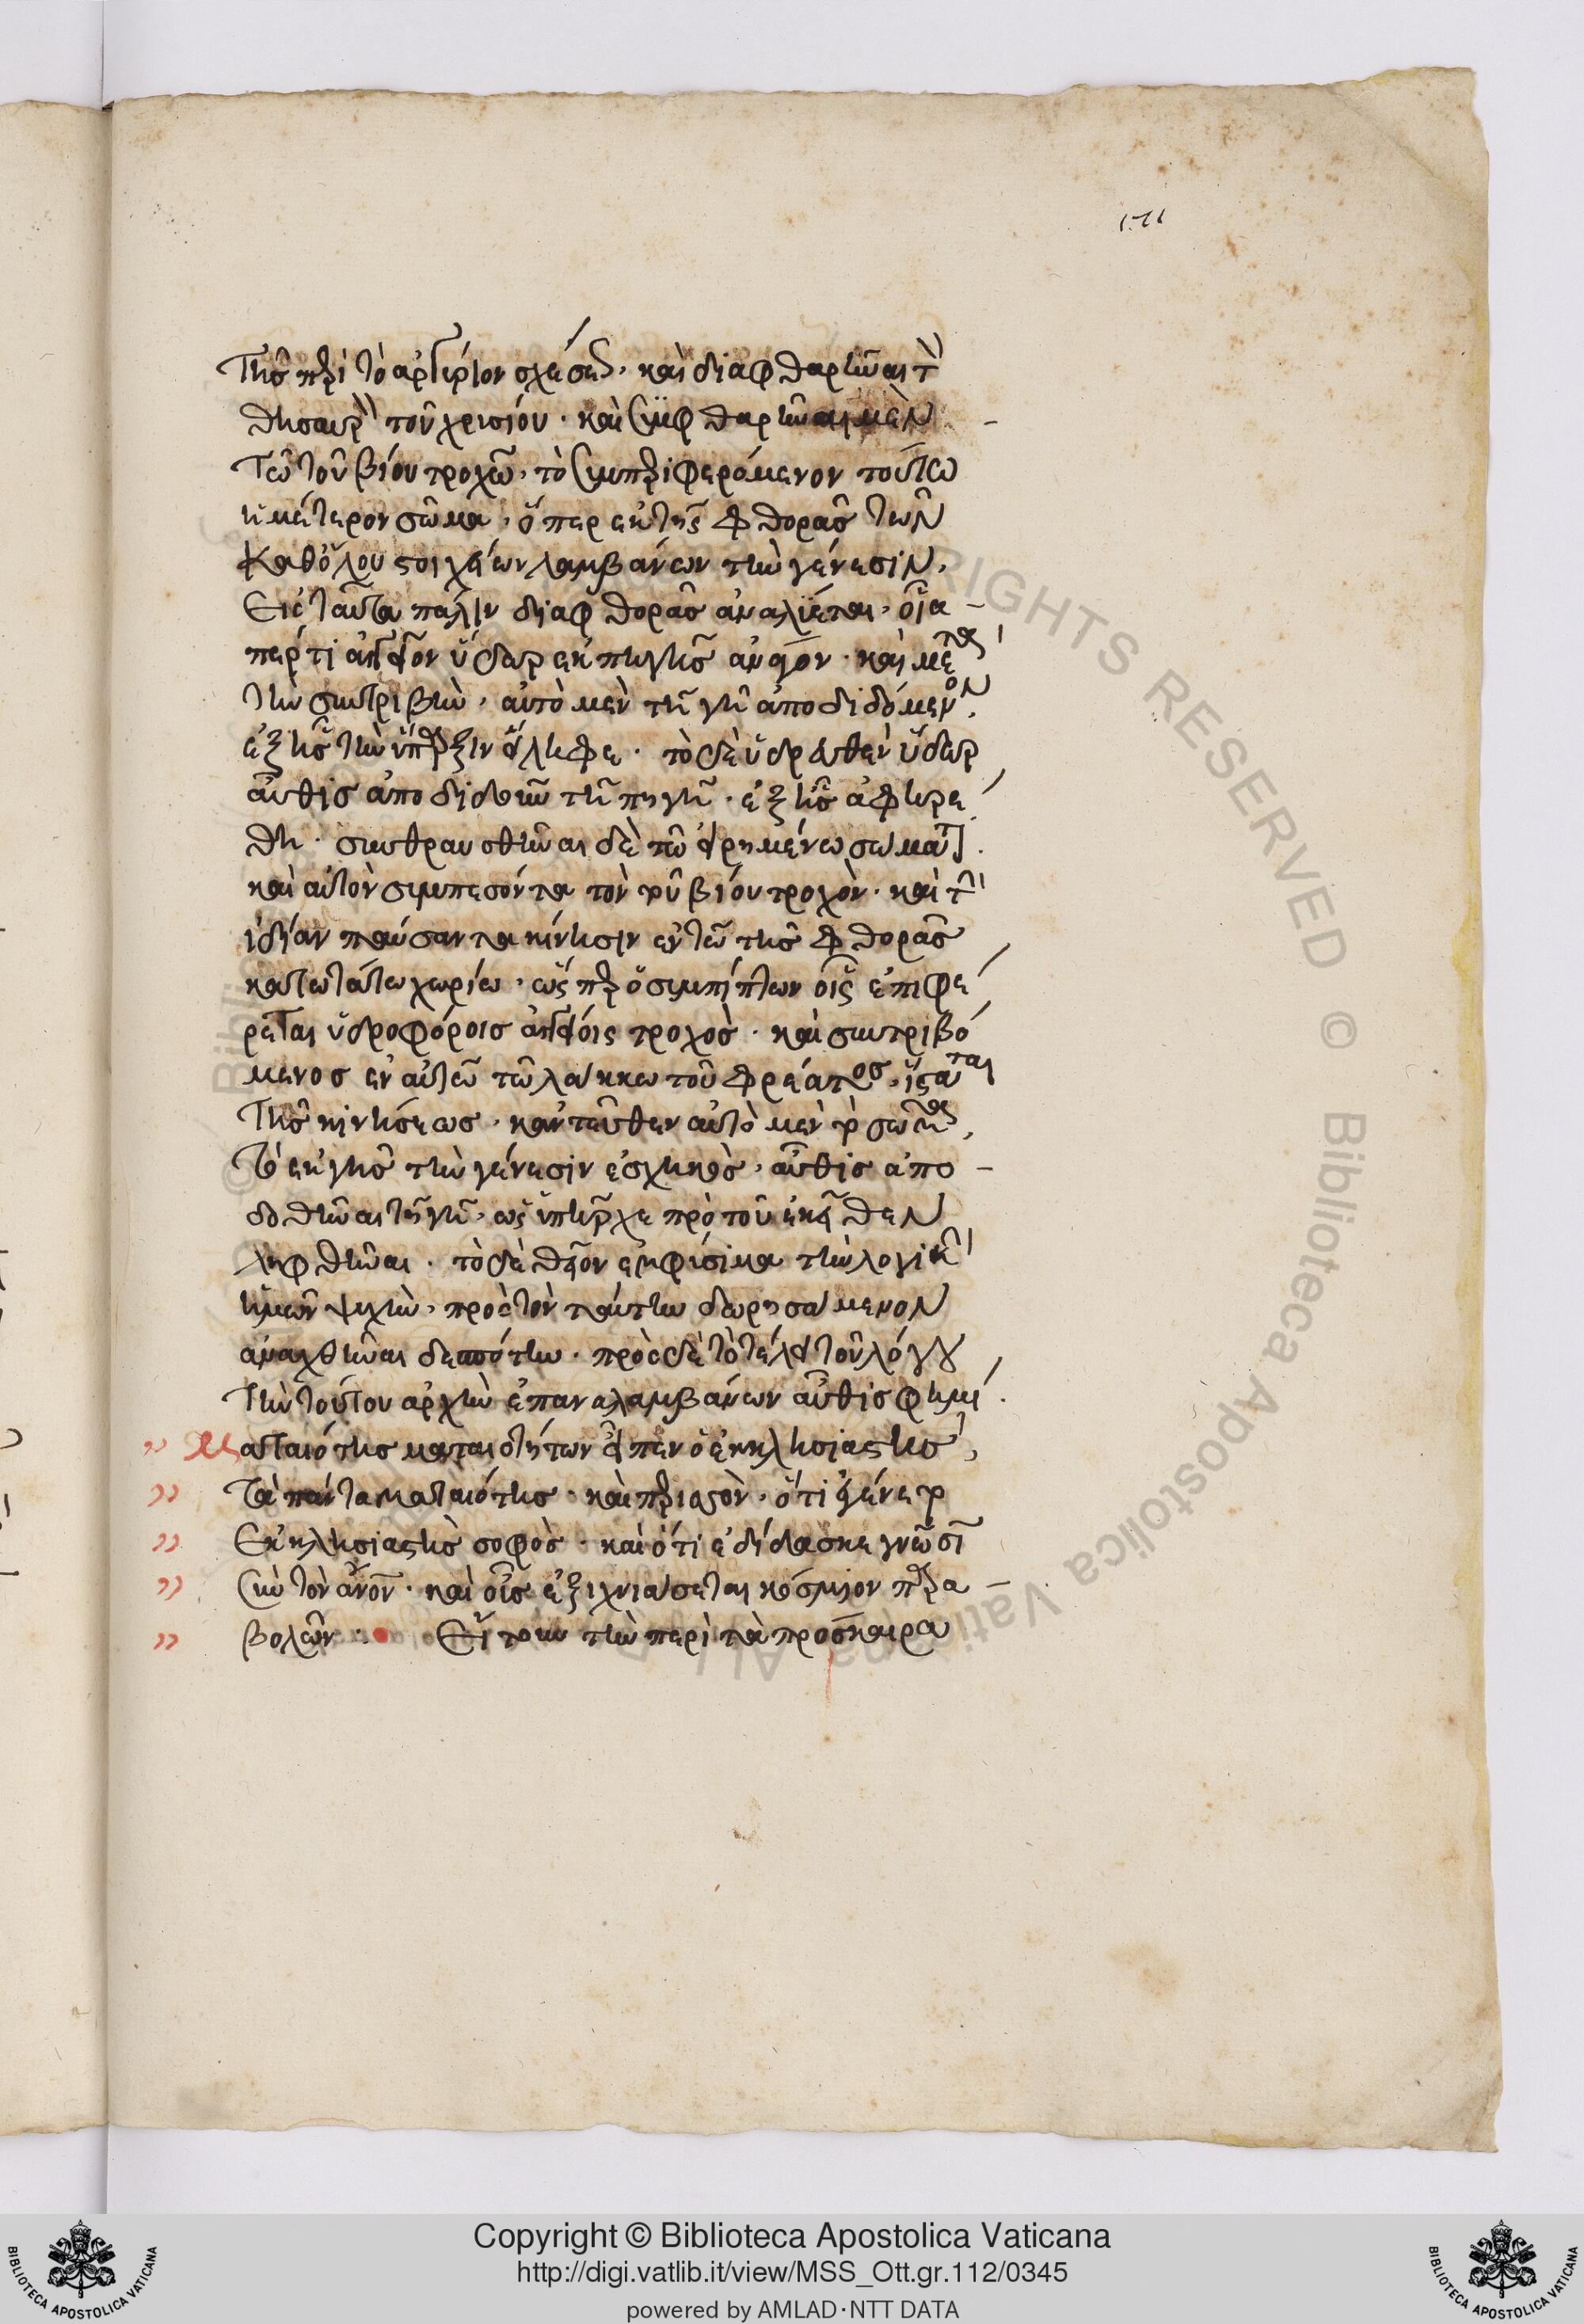 171
τῆς περὶ τὸ ἀργύριον σχέσεως· καὶ διαφθαρῆναι τὸν
θησαυρὸν τοῦ χρυσίου· καὶ συμφθαρῆναι μὲν
τῶ τοῦ βίου τροχῶ, τὸ συμπεριφερόμενον τούτω
ἡμέτερον σῶμα, ὅπερ ἐκ τῆς φθορᾶς τῶν
καθόλου στοιχείων λαμβάνων τὴν γένεσιν,
εἰς ταῦτα πάλιν διαφθορᾶς ἀναλύεται, οἷα
περ τι ἀγγεῖον ὕδωρ ἐκ πηγῆς· καὶ μετὰ
τὴν συντριβὴν, αὐτὸ μὲν τῆ γῆ ἀποδιδόμενον,
ἐξ ἧς τὴν ὕπαρξιν εἴληφε· τὸ δὲ ὑδρευθὲν ὕδωρ
αὖθις ἀποδιδοῦν τῆ πηγῆ, ἐξ ἧς ἀφηρέ
θη· συνθραυσθῆναι δὲ τῶ εἰρημένω σώματι
καὶ αὐτὸν συμπεσόντα τὸν τοῦ βίου τροχὸν· καὶ τὴν
ἰδίαν παύσαντα κίνησιν ἐν τῶ τῆς φθορᾶς
κατωτάτω χωρίω, ὥσπερ ὁ συμπίπτων οἷς ἐπιφέ
ρεται ὑδροφόροις ἀγγείοις τροχὸς· καὶ συντριβό
μενος ἐν αὐτῶ τῶ λάκκω τοῦ φρέατος, ἵσταται
τῆς κινήσεως· κἀντεῦθεν αὐτὸ μὲν τὸ σῶμα,
τὸ ἐκ γῆς τὴν γένεσιν ἐσχηκὸς, αὖθις ἀπο
δοθῆναι τῆ γῆ, ὡς ὑπῆρχε πρὸ τοῦ ἐκεῖθεν
ληφθῆναι· τὸ δὲ θεῖον ἐμφύσημα τὴν λογικὴν
ἡμῶν ψυχὴν, πρὸς τὸν ταύτην δωρησάμενον
ἀναχθῆναι δεσπότην· πρὸς δὲ τὸ τέλει τοῦ λόγου
τὴν τούτου ἀρχὴν ἐπαναλαμβάνων αὖθις φημί·
Ματαιότης ματαιοτήτων εἶπεν ὁ ἐκκλησιαστής,
τὰ πάντα ματαιότης· καὶ περισσὸν, ὅτι ἐγένετο
ἐκκλησιαστὴς σοφὸς· καὶ ὅτι ἐδίδασκε γνῶσιν
σὺν τὸν ἄνθρωπον· καὶ οὖς ἐξιχνιάσεται κόσμιον παρα
βολῶν· Εἴ τοι τὴν περὶ τὰ πρόσκαιρα
Copyright © Biblioteca Apostolica Vaticana
http://digi.vatlib.it/view/MSS_Ott.gr.112/0345
powered by AMLAD·NTT DATA